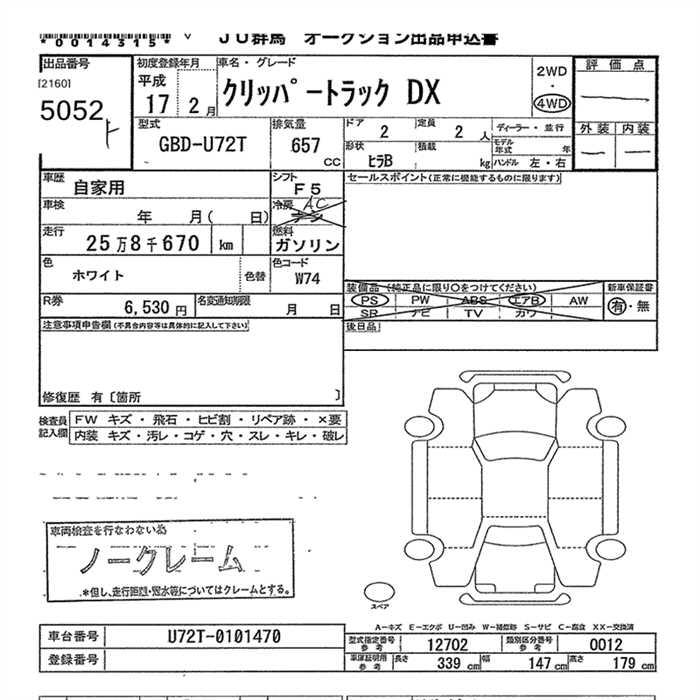 *0014315* ∨ JU群馬 オークション出品申込書
出品番号 初度登録年月 車名・グレード 2WD 評価点
[2160] 平成
5052 ト 17 2月 クリッパートラック DX 4WD
外装 内装
型式 排気量 ドア 定員 ディーラー・並行
GBD-U72T 657 CC 2 2 人 モデル年式 年
形状 積載
ヒラB kg ハンドル 左・右
車歴 自家用 シフト F5 セールスポイント(正常に機能するものに限ります)
車検 年 月( 日) 冷房 AC
走行 25万8千670 km 燃料 ガソリン
色 ホワイト 色替 色コード W74
装備品(純正品に限り○をつけてください) 新車保証書
PS PW ABS エアB AW 有・無
SR ナビ TV カワ
R券 6,530円 名変通知期限 月 日
注意事項申告欄(不具合内容等は具体的に記入して下さい) 後日品
修復歴 有〔箇所 〕
検査員記入欄 FW キズ・飛石・ヒビ割・リペア跡・×要
内装 キズ・汚レ・コゲ・穴・スレ・キレ・破レ
車両検査を行なわない為
ノークレーム
*但し、走行距離・冠水等についてはクレームとする。
スペア
A-キズ E-エクボ U-凹み W-補修跡 S-サビ C-腐食 XX-交換済
車台番号 U72T-0101470
型式指定番号 参考 12702 類別区分番号 参考 0012
登録番号
車庫証明用 参考 長さ 339 cm 幅 147 cm 高さ 179 cm